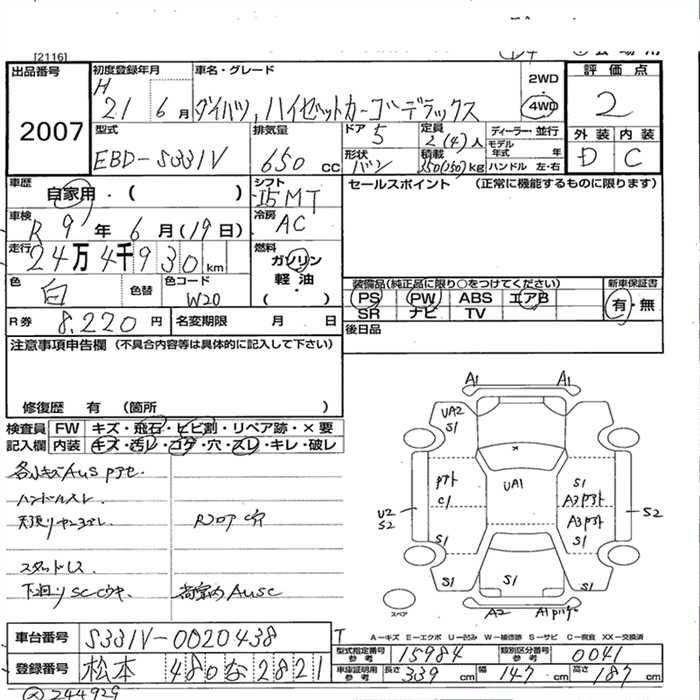 [2116]
出品番号
2007
初度登録年月
H
21 6月
車名・グレード
ダイハツ, ハイゼットカーゴデラックス
2WD
4WD
評価点
2
外装 内装
D C
型式
EBD-S331V
排気量
650 CC
ドア 5
形状 バン
定員
2(4)人
積載
350(250)kg
ディーラー・並行
モデル年式 年
ハンドル 左・右
車歴
自家用・( )
シフト
I5MT
車検
R9年6月(19日)
冷房
AC
走行
24万4千930km
燃料
ガソリン
軽油
( ・ )
色
白
色替
色コード
W20
R券 8,220円
名変期限 月 日
セールスポイント (正常に機能するものに限ります)
装備品(純正品に限り○をつけてください)
PS PW ABS エアB
SR ナビ TV
新車保証書
有・無
後日品
注意事項申告欄 (不具合内容等は具体的に記入して下さい)
修復歴 有 (箇所 )
検査員 FW キズ・飛石・ヒビ割・リペア跡・×要
記入欄 内装 キズ・汚レ・コゲ・穴・スレ・キレ・破レ
ハンドルスレ
スタッドレス
A1 A1
UA2
S1
UA1
C1
S1
A3
A3
S1
U2
S2
S2
S1
S1
S1
S1
A2
スペア
A-キズ E-エクボ U-凹み W-補修跡 S-サビ C-腐食 XX-交換済
車台番号 S331V-0020438
登録番号 松本 480 な 2821
型式指定番号 参考 15984
類別区分番号 参考 0041
車庫証明用 参考 長さ 339 cm 幅 147 cm 高さ 187 cm
244929